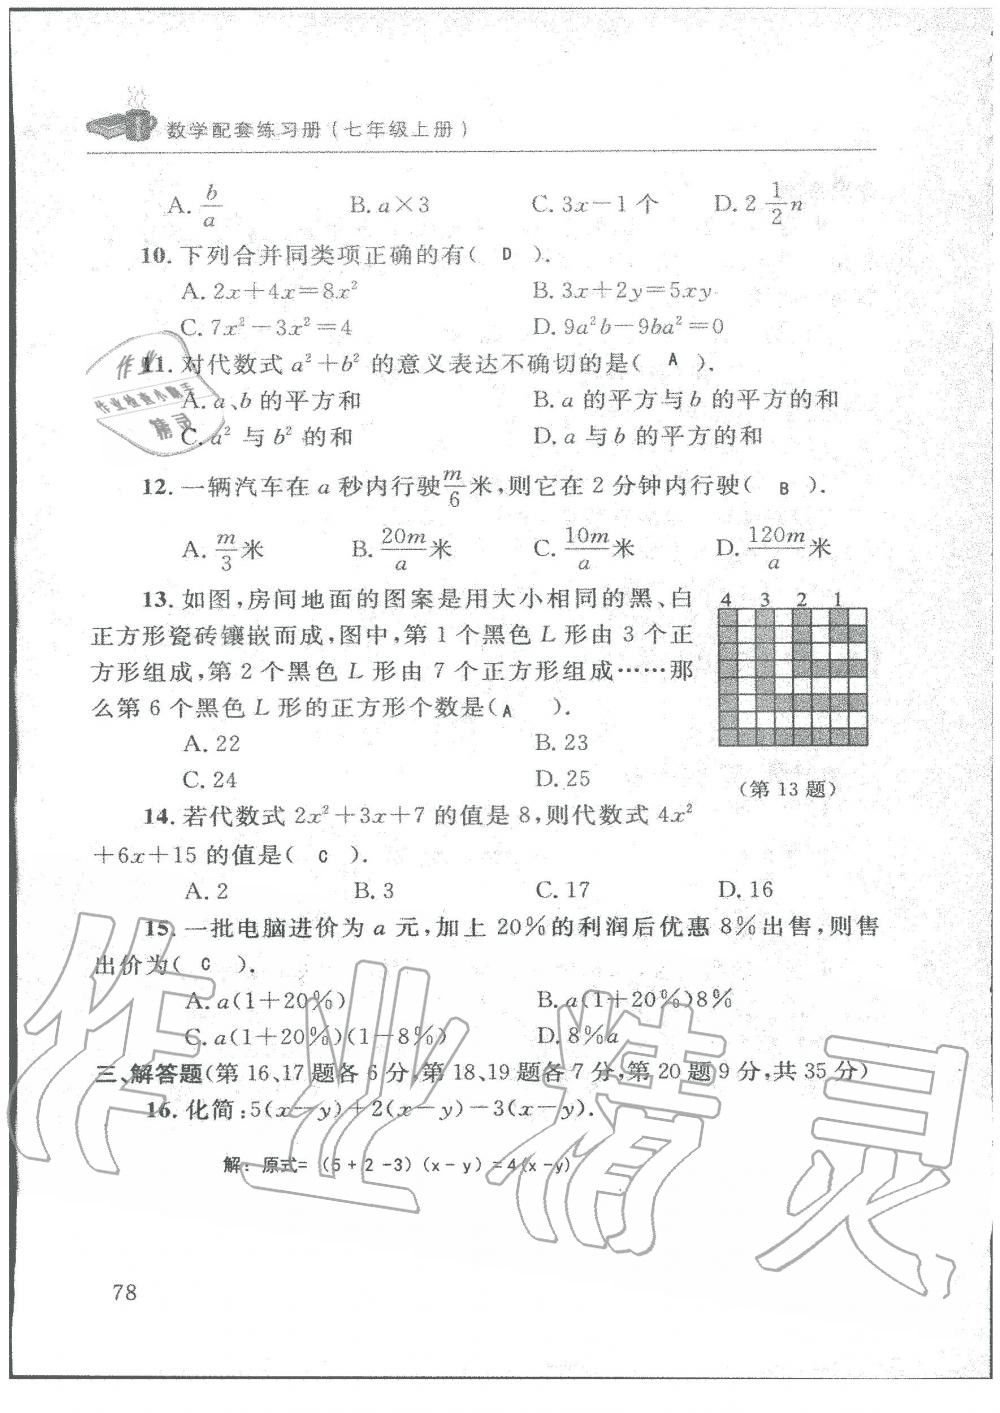 数学配套练习册(七年级上册)
A. b/a B. a×3 C. 3x－1个 D. 2 1/2 n
10. 下列合并同类项正确的有( D ).
A. 2x＋4x＝8x² B. 3x＋2y＝5xy
C. 7x²－3x²＝4 D. 9a²b－9ba²＝0
11. 对代数式 a²＋b² 的意义表达不确切的是( A ).
A. a、b 的平方和 B. a 的平方与 b 的平方的和
C. a² 与 b² 的和 D. a 与 b 的平方的和
12. 一辆汽车在 a 秒内行驶 m/6 米,则它在 2 分钟内行驶( B ).
A. m/3 米 B. 20m/a 米 C. 10m/a 米 D. 120m/a 米
13. 如图,房间地面的图案是用大小相同的黑、白
正方形瓷砖镶嵌而成,图中,第 1 个黑色 L 形由 3 个正
方形组成,第 2 个黑色 L 形由 7 个正方形组成……那
么第 6 个黑色 L 形的正方形个数是( A ).
A. 22 B. 23
C. 24 D. 25
4 3 2 1
(第 13 题)
14. 若代数式 2x²＋3x＋7 的值是 8,则代数式 4x²
＋6x＋15 的值是( C ).
A. 2 B. 3 C. 17 D. 16
15. 一批电脑进价为 a 元,加上 20%的利润后优惠 8%出售,则售
出价为( C ).
A. a(1＋20%) B. a(1＋20%)8%
C. a(1＋20%)(1－8%) D. 8%a
三、解答题(第 16、17 题各 6 分,第 18、19 题各 7 分,第 20 题 9 分,共 35 分)
16. 化简:5(x－y)＋2(x－y)－3(x－y).
解：原式=（5+2-3）(x-y) =4(x-y)
78
作业
作业检查小助手
精灵
作业精灵